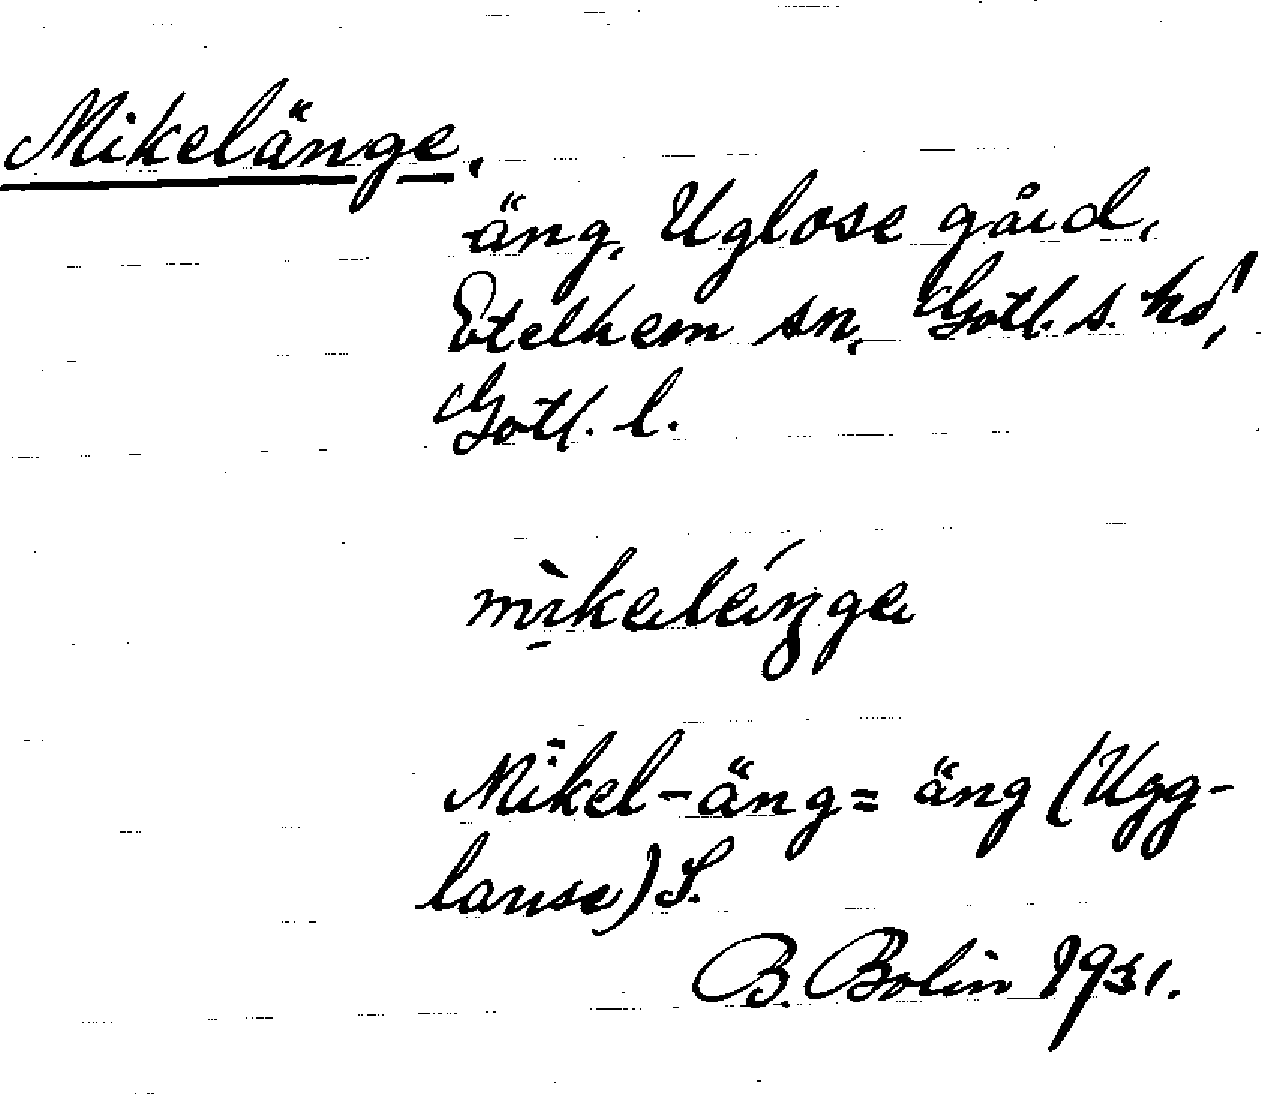 Mikelänge.
äng, Uglose gård,
Etelhem sn, Gotl. s. hd,
Gotl. l.
mìkeléŋge
Mikel-äng = äng (Ugg-
lause) S.
B. Bolin 1931.